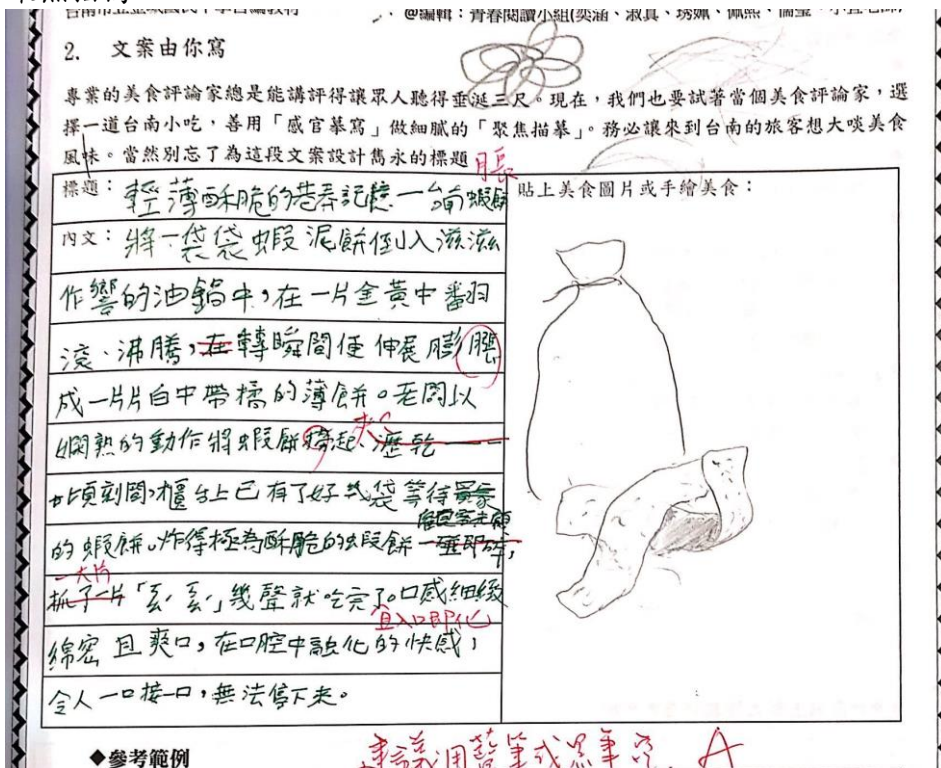 @編輯：青春閱讀小組(奕涵、淑真、琇姵、佩熙、
2. 文案由你寫
專業的美食評論家總是能講評得讓眾人聽得垂涎三尺。現在，我們也要試著當個美食評論家，選
擇一道台南小吃，善用「感官摹寫」做細膩的「聚焦描摹」。務必讓來到台南的旅客想大啖美食
風味。當然別忘了為這段文案設計雋永的標題
脹
標題：輕薄酥脆的巷弄記憶—台南蝦餅
貼上美食圖片或手繪美食：
內文：將一袋袋蝦泥餅倒入滋滋
作響的油鍋中，在一片金黃中翻
滾、沸騰，在轉瞬間便伸展膨脹
成一片片白中帶橘的薄餅。老闆以
嫻熟的動作將蝦餅撈起、瀝乾
頃刻間，櫃台上已有了好幾袋等待
的蝦餅。炸得極為酥脆的蝦餅一碰即碎，
一大片
抓了一片「ㄎㄠ ㄎㄠ」幾聲就吃完了。口感細緻
且入口即化
綿密且爽口，在口腔中融化的快感，
令人一口接一口，無法停下來。
◆參考範例
建議用藍筆或黑筆寫 A